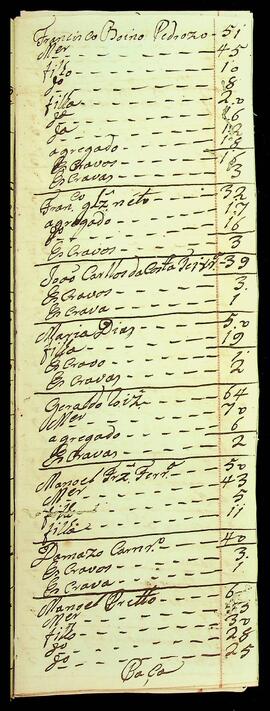 Francisco Boino Pedrozo - 51
Mer - - - - 45
filho - - - - 10
do - - - - 8
filha - - - - 20
da - - - - 16
da - - - - 12
agregado - - - - 18
Escravos - - - -
Escravas - - - - 3
Franco Glz neto - - 32
agregado - - - - 17
do - - - - 16
Escravos - - - - 3
João Carllos da Costa - 39
Escravos - - - - 3
Escrava - - - - 1
Maria Dias - - - - 50
filla - - - - 19
Escravo - - - - 1
Escravas - - - - 2
Geraldo Loiz - - - - 64
Mer - - - - 70
agregado - - - - 6
Escravas - - - - 2
Manoel Frz Ferra - - 50
Mer - - - - 43
fillo - - - - 5
filla - - - - 11
Damazo Carnro - - 40
Escravos - - - - 3
Escrava - - - - 1
Manoel Pretto - - 6
Mer - - - - 53
fillo - - - - 30
do - - - - 28
do - - - - 25
Paça